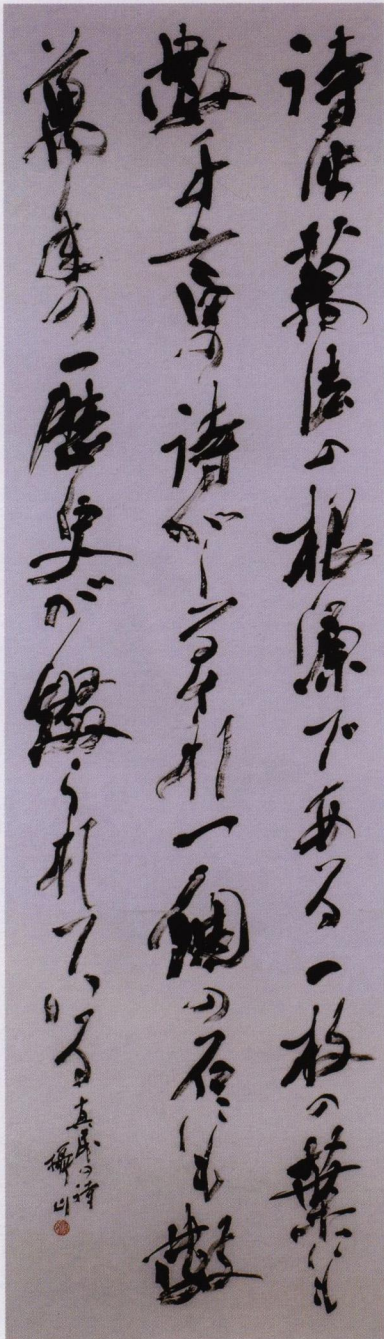 詩は萬法の根源である一枚の葉にも
數千言の詩がしるされ一個の石にも數
萬年の歴史が綴られている
真民の詩